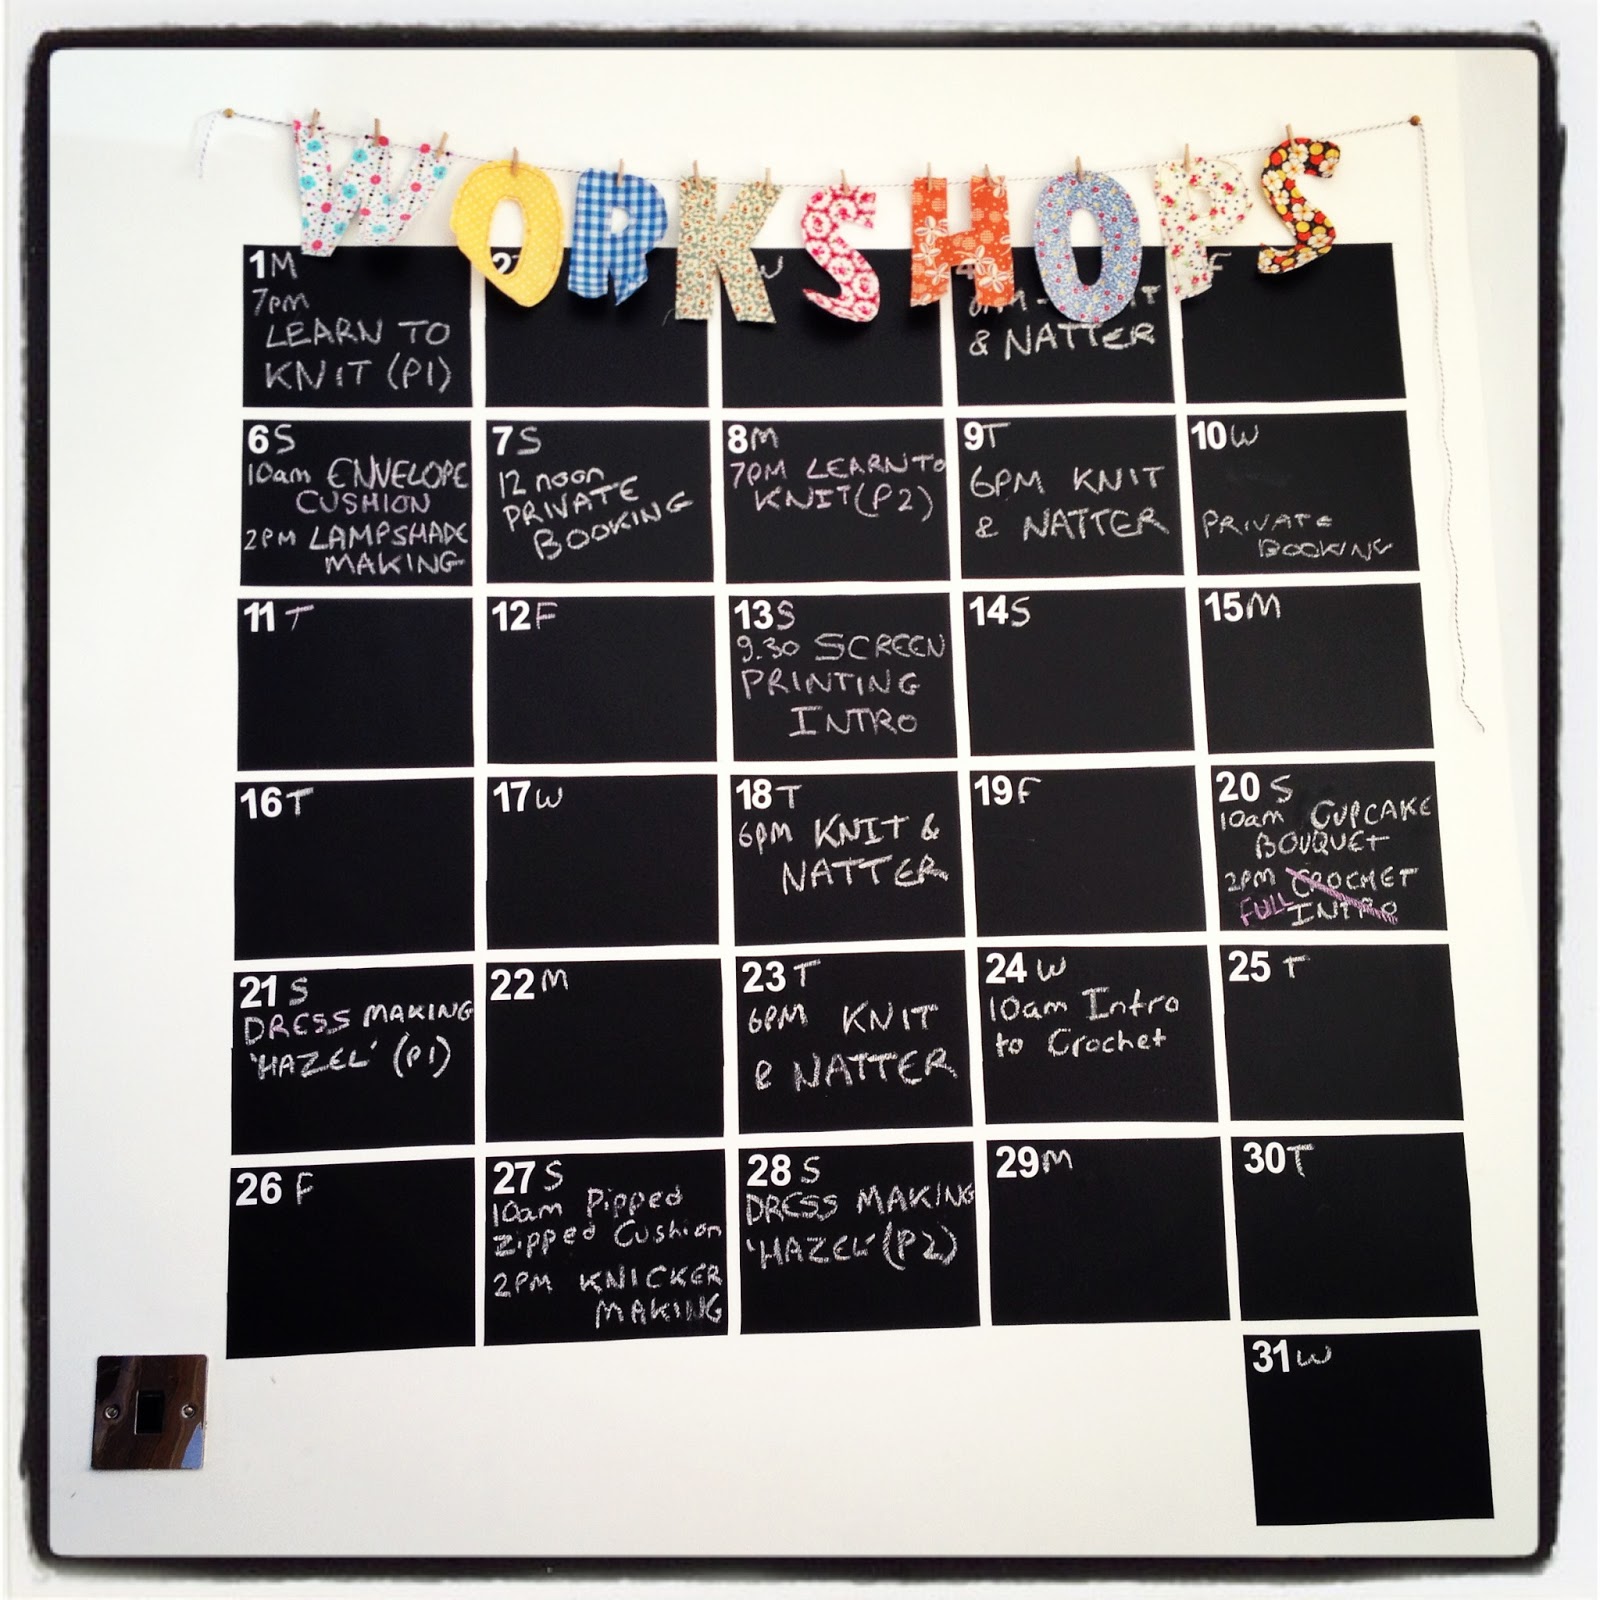 WORKSHOPS
1 M
7pm
LEARN TO
KNIT (P1)
2
W
& NATTER
F
6 S
10am ENVELOPE
CUSHION
2PM LAMPSHADE
MAKING
7 S
12 noon
PRIVATE
BOOKING
8 M
7PM LEARN TO
KNIT (P2)
9 T
6PM KNIT
& NATTER
10 W
PRIVATE
BOOKING
11 T
12 F
13 S
9.30 SCREEN
PRINTING
INTRO
14 S
15 M
16 T
17 W
18 T
6pm KNIT &
NATTER
19 F
20 S
10am CUPCAKE
BOUQUET
2PM CROCHET
FULL INTRO
21 S
DRESS MAKING
'HAZEL' (P1)
22 M
23 T
6PM KNIT
& NATTER
24 W
10am Intro
to Crochet
25 T
26 F
27 S
10am Pipped
Zipped Cushion
2PM KNICKER
MAKING
28 S
DRESS MAKING
'HAZEL' (P2)
29 M
30 T
31 W